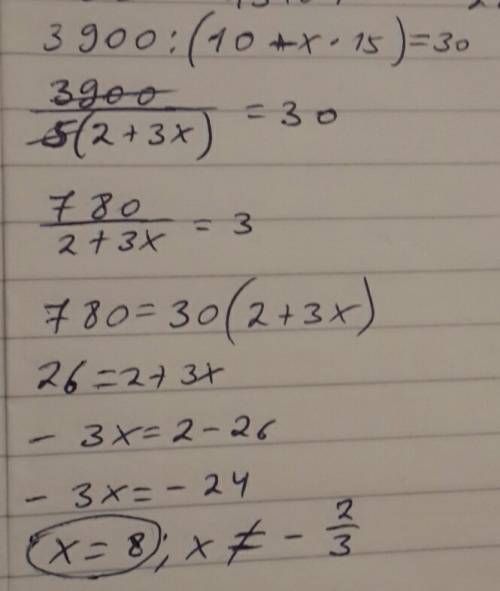 3900:(10+x·15)=30
3900/5(2+3x) = 30
780/2+3x = 3
780=30(2+3x)
26=2+3x
- 3x=2-26
- 3x=-24
x=8; x≠-2/3